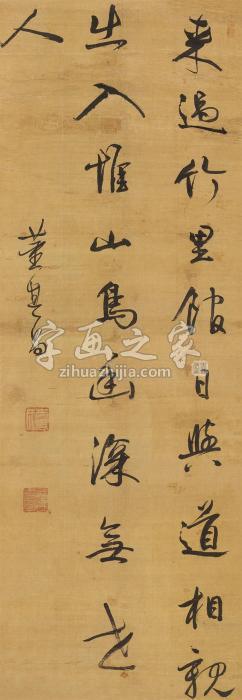 来過竹里館日與道相親
出入惟山鳥幽深無世
人
董其昌
字画之家
zihuazhijia.com